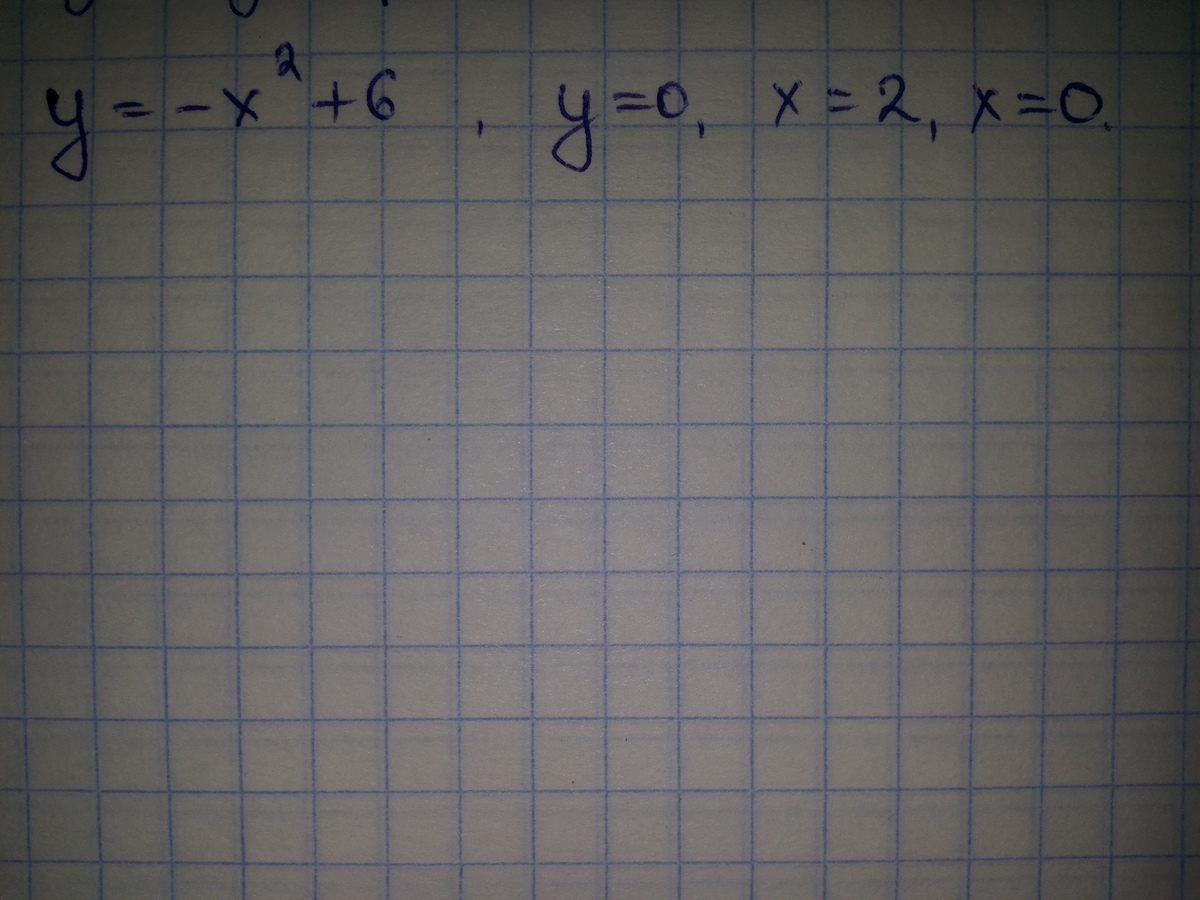 y = -x² + 6 , y = 0, x = 2, x = 0.